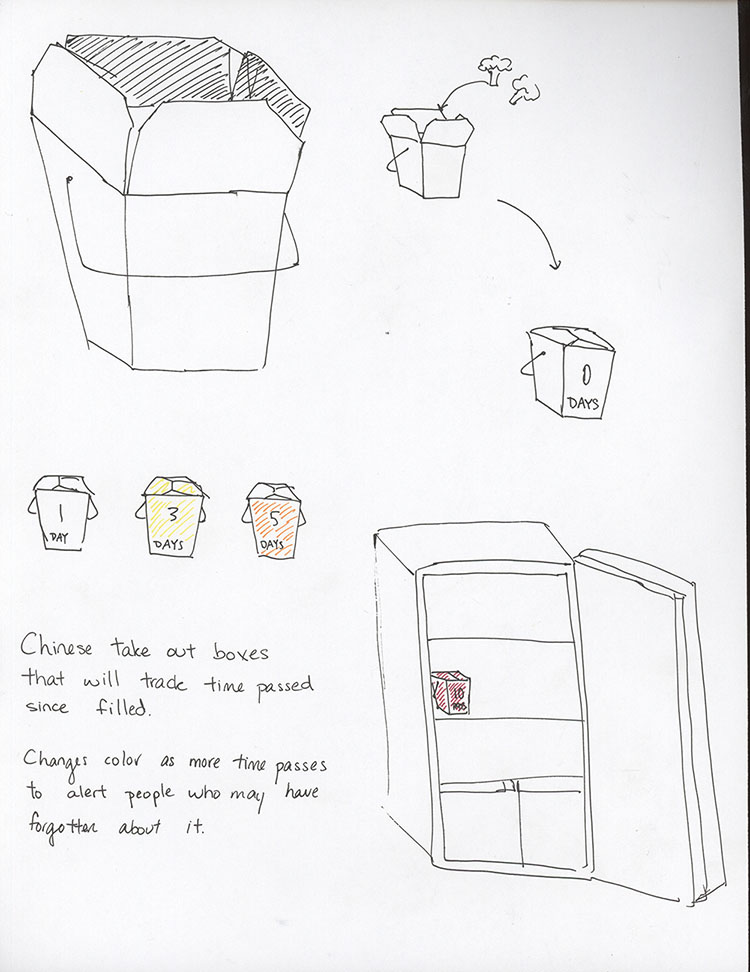 0
DAYS
1
DAY
3
DAYS
5
DAYS
Chinese take out boxes
that will track time passed
since filled.
Changes color as more time passes
to alert people who may have
forgotten about it.
10